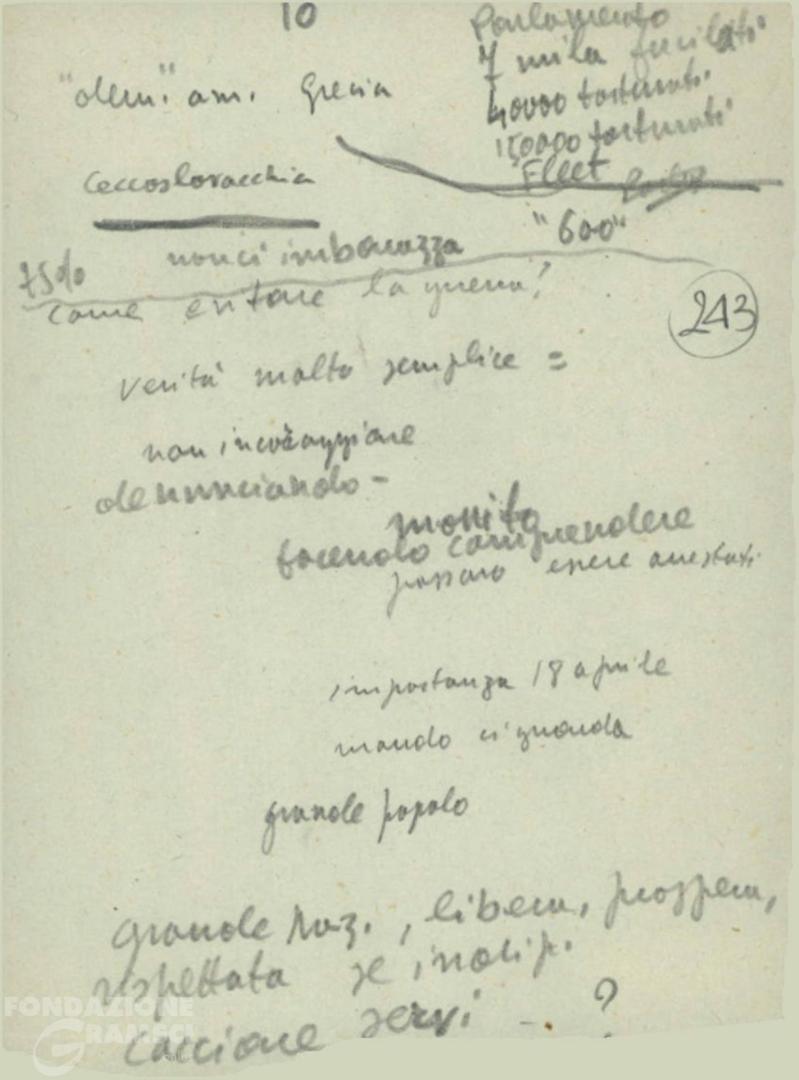 10
Parlamento
7 mila fucilati
"dem." am. Grecia
40000 torturati
150000 torturati
Fleet
Cecoslovacchia
"600"
non ci imbarazza
75%
come evitare la guerra?
243
verità molto semplice =
non incoraggiare
denunciando -
monito
facendo comprendere
possano essere arrestati
importanza 18 aprile
mondo ci guarda
grande popolo
grande naz., libera, prospera,
rispettata se indip.
cacciare servi - . ?
FONDAZIONE
GRAMSCI